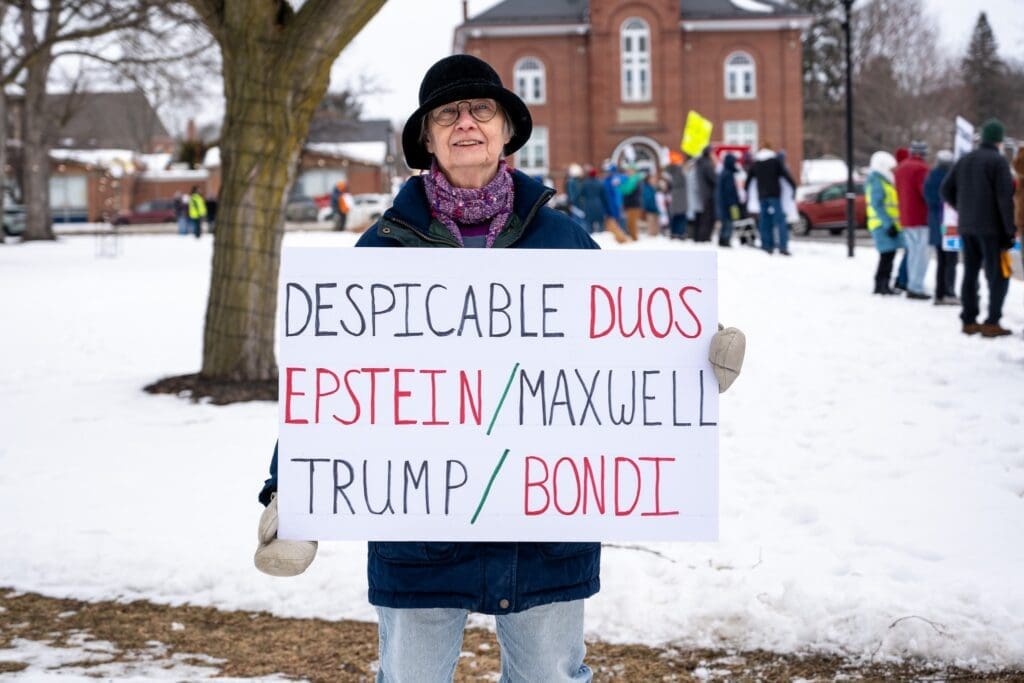 DESPICABLE DUOS
EPSTEIN/MAXWELL
TRUMP/BONDI